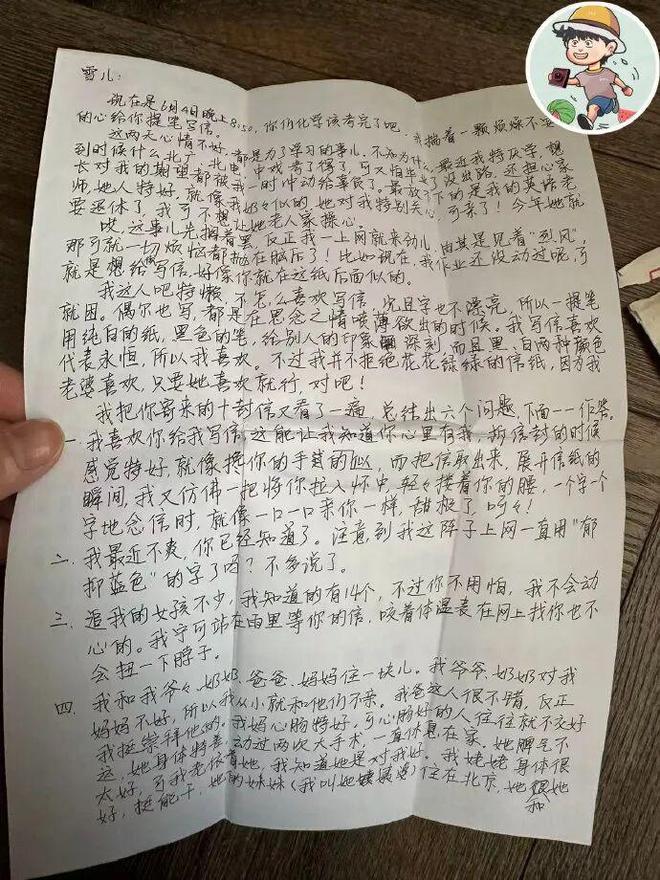 雪儿：
现在是6月4日晚上8:50，你们化学该考完了吧，我揣着一颗烦燥不安
的心给你提笔写信。
这两天心情不好，都是为了学习的事儿，不知为什么，最近我特厌学，想
到时候什么北广、北电、中戏考了得了，可又怕毕业了没出路，还担心家
长对我的期望都被我一时冲动给辜负了。最放不下的是我的英语老
师，她人特好，就像我奶奶似的，她对我特别关心，可来了！今年她就
要退休了，我可不想让她老人家操心。
哎，这事儿先搁着罢，反正我一上网就来劲儿，由其是见着“烈风”，
那可就一切烦恼都抛在脑后了！比如现在，我作业还没动过呢，可
就是想给你写信，好像你就在这纸后面似的。
我这人吧特懒，不怎么喜欢写信，况且字也不漂亮，所以一提笔
就困。偶尔也写，都是在思念之情喷薄欲出的时候。我写信喜欢
用纯白的纸，黑色的笔，给别人的印象深刻，而且黑、白两种颜色
代表永恒，所以我喜欢。不过我并不拒绝花花绿绿的信纸，因为我
老婆喜欢，只要她喜欢就行，对吧！
我把你寄来的十封信又看了一遍，总结出六个问题，下面一一作答。
一、我喜欢你给我写信，这能让我知道你心里有我，拆信封的时候
感觉特好，就像搀你的手似的，而把信取出来，展开信纸的
瞬间，我又仿佛一把将你拉入怀中，轻轻搂着你的腰，一个字一个
字地念信时，就像一口一口亲你一样，甜极了，呵呵！
二、我最近不爽，你已经知道了。注意到我这阵子上网一直用“郁
抑蓝色”的字了吗？不多说了。
三、追我的女孩不少，我知道的有14个，不过你不用怕，我不会动
心的。我宁可站在雨里等你的信，咬着体温表在网上找你也不
会扭一下脖子。
四、我和我爷爷、奶奶、爸爸、妈妈住一块儿。我爷爷、奶奶对我
妈妈不好，所以我从小就和他们不亲。我爸这人很不错，反正
我挺崇拜他的。我妈心肠特好，可心肠好的人往往就不交好
运，她身体特差，动过两次大手术，一直休息在家。她脾气不
太好，可我老依着她，我知道她是对我好。我姥姥身体很
好，挺能干，她的妹妹（我叫她姨姥姥）住在北京，她和她